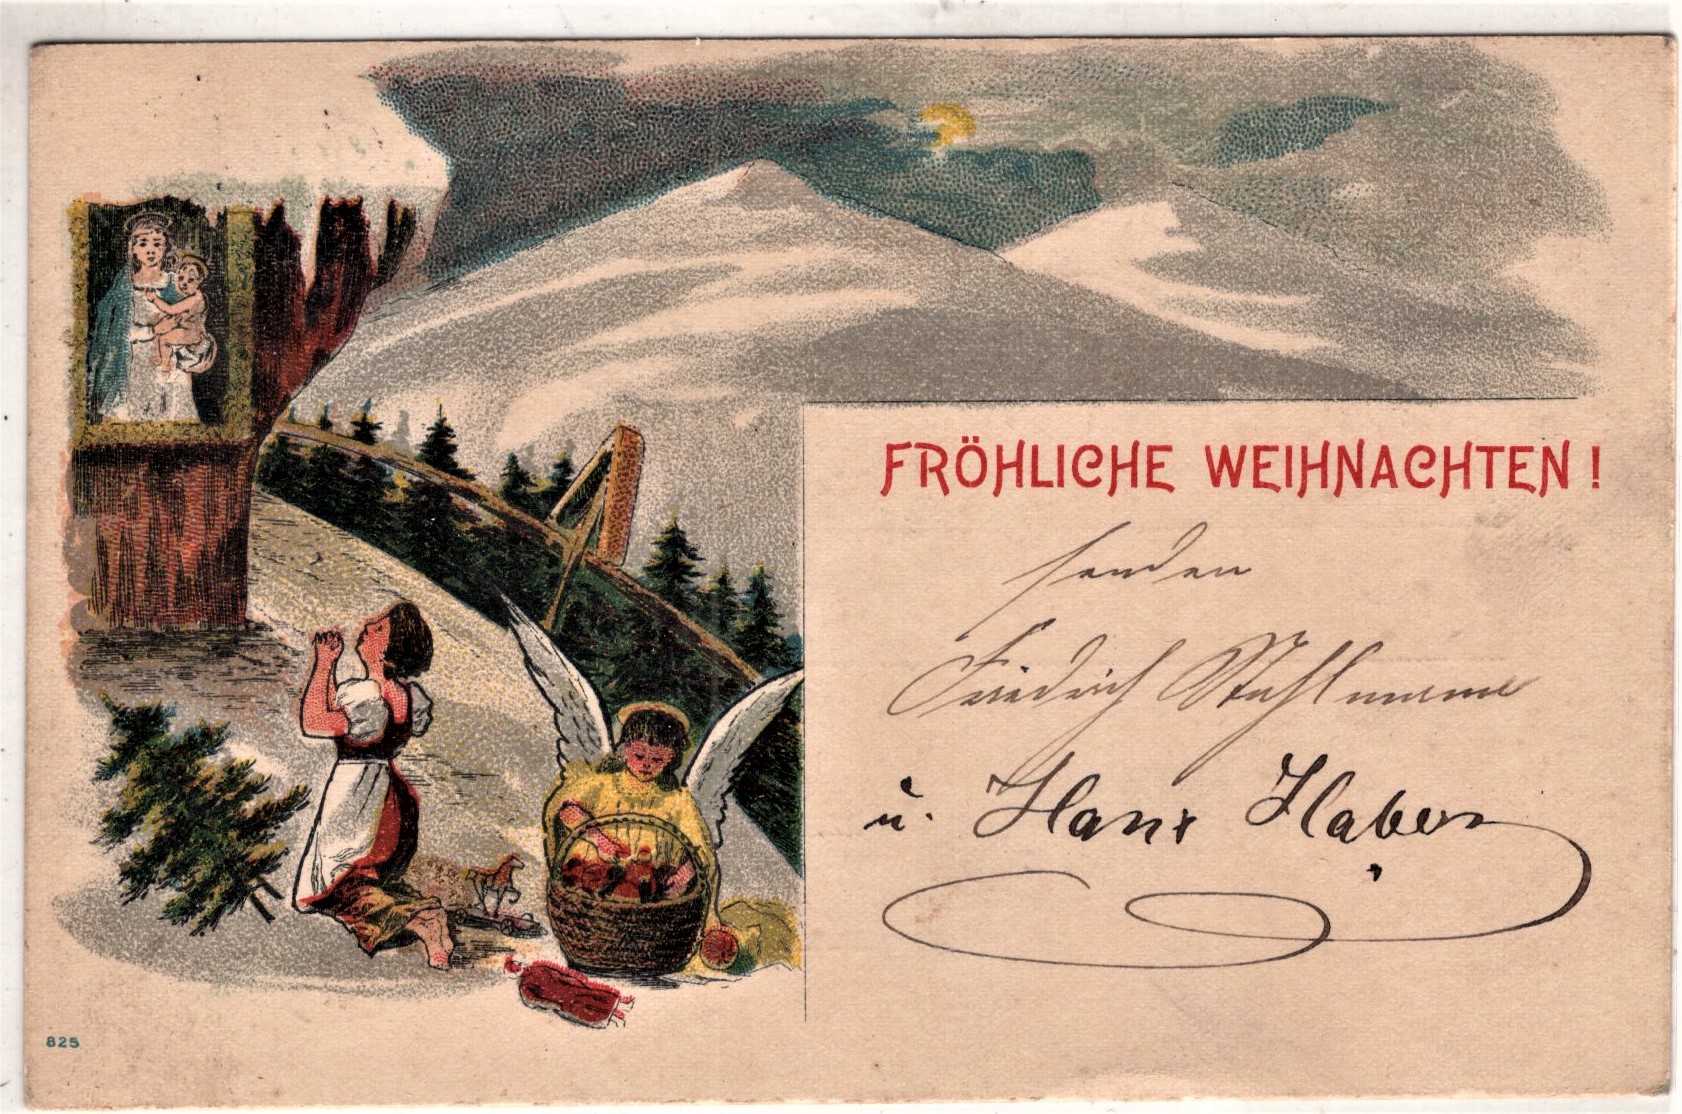 FRÖHLICHE WEIHNACHTEN!
senden
Friedrich
u. Hans Haber
825